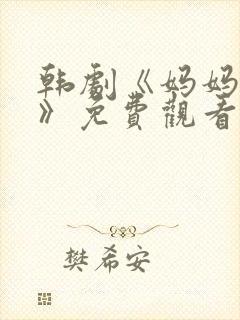 韩劇《妈妈
》免費觀看
樊希安